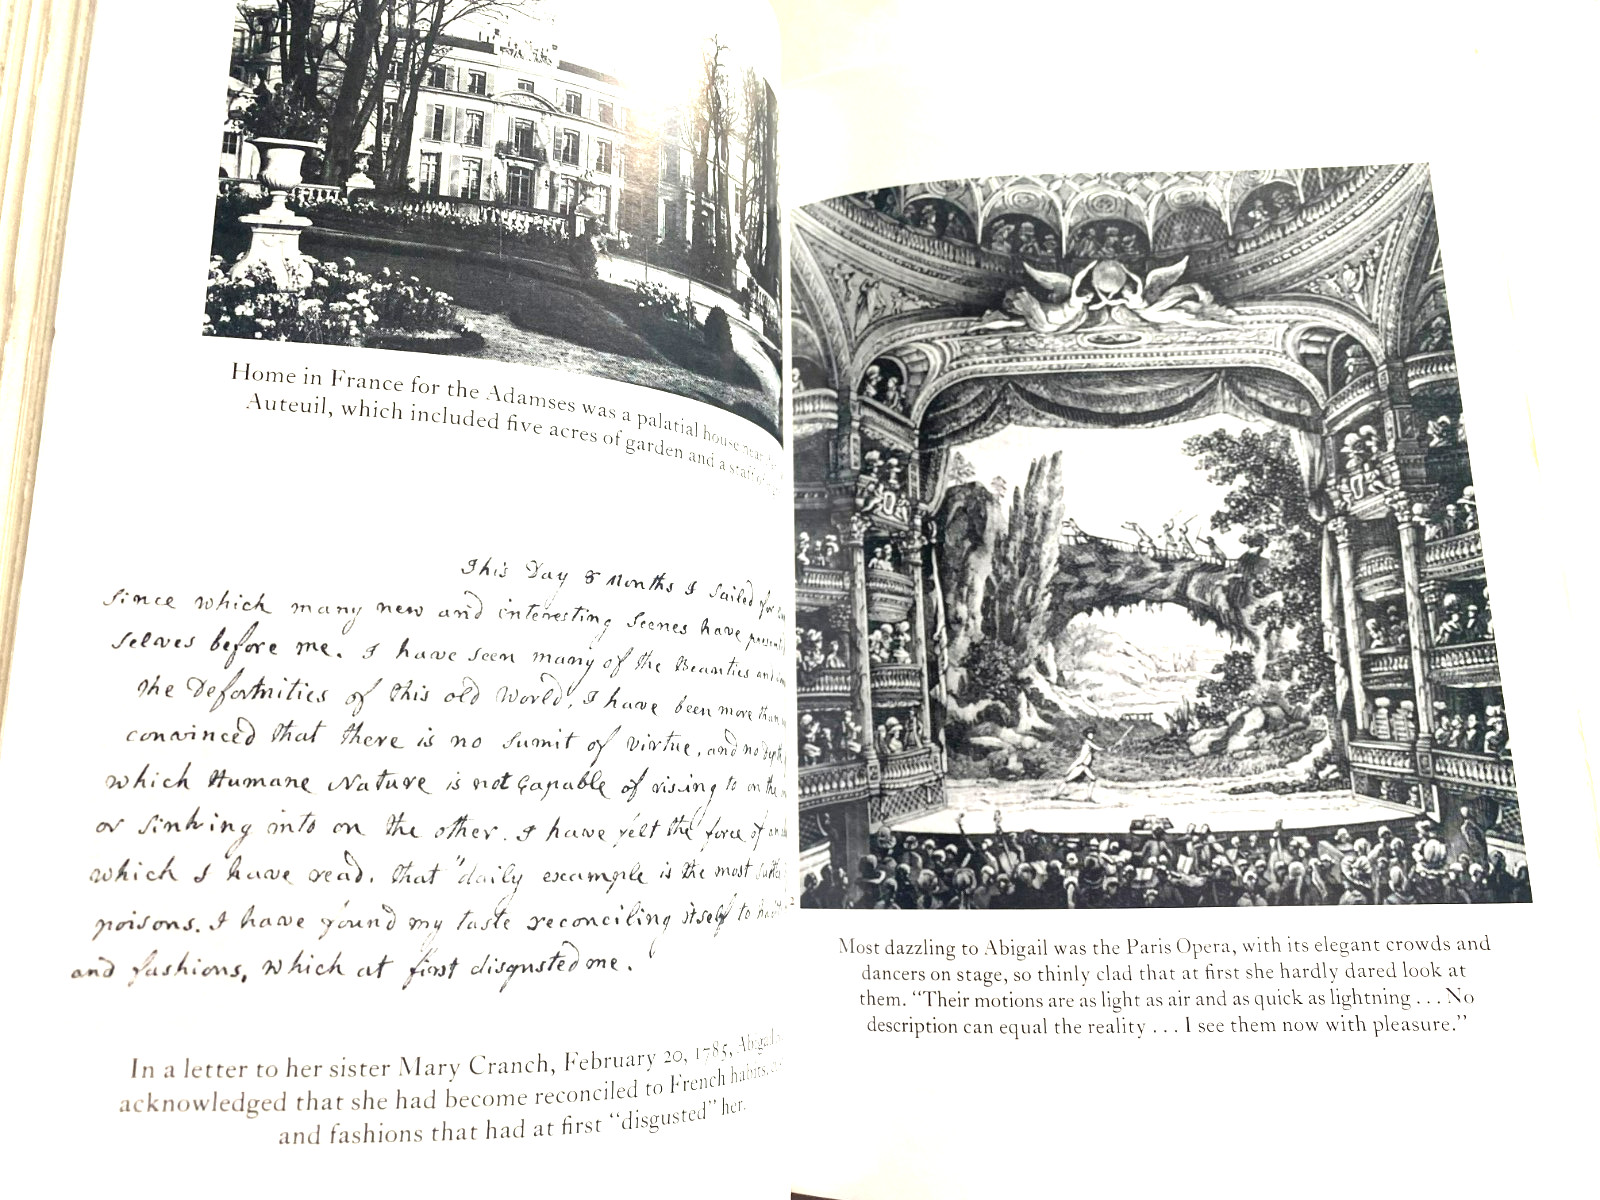 Home in France for the Adamses was a palatial house near
Auteuil, which included five acres of garden and a staff of
This Day 8 Months I sailed for
since which many new and interesting Scenes have present
selves before me. I have seen many of the Beauties and
the Deformities of this old World. I have been more than
convinced that there is no sumit of virtue, and no
which Humane Nature is not Capable of rising to on the
or sinking into on the other. I have felt the force of an
which I have read. that "daily example is the most
poisons. I have found my taste reconciling itself to
and fashions, which at first disgusted me.
In a letter to her sister Mary Cranch, February 20, 1785, Abigail
acknowledged that she had become reconciled to French habits,
and fashions that had at first "disgusted" her.
Most dazzling to Abigail was the Paris Opera, with its elegant crowds and
dancers on stage, so thinly clad that at first she hardly dared look at
them. "Their motions are as light as air and as quick as lightning . . . No
description can equal the reality . . . I see them now with pleasure."